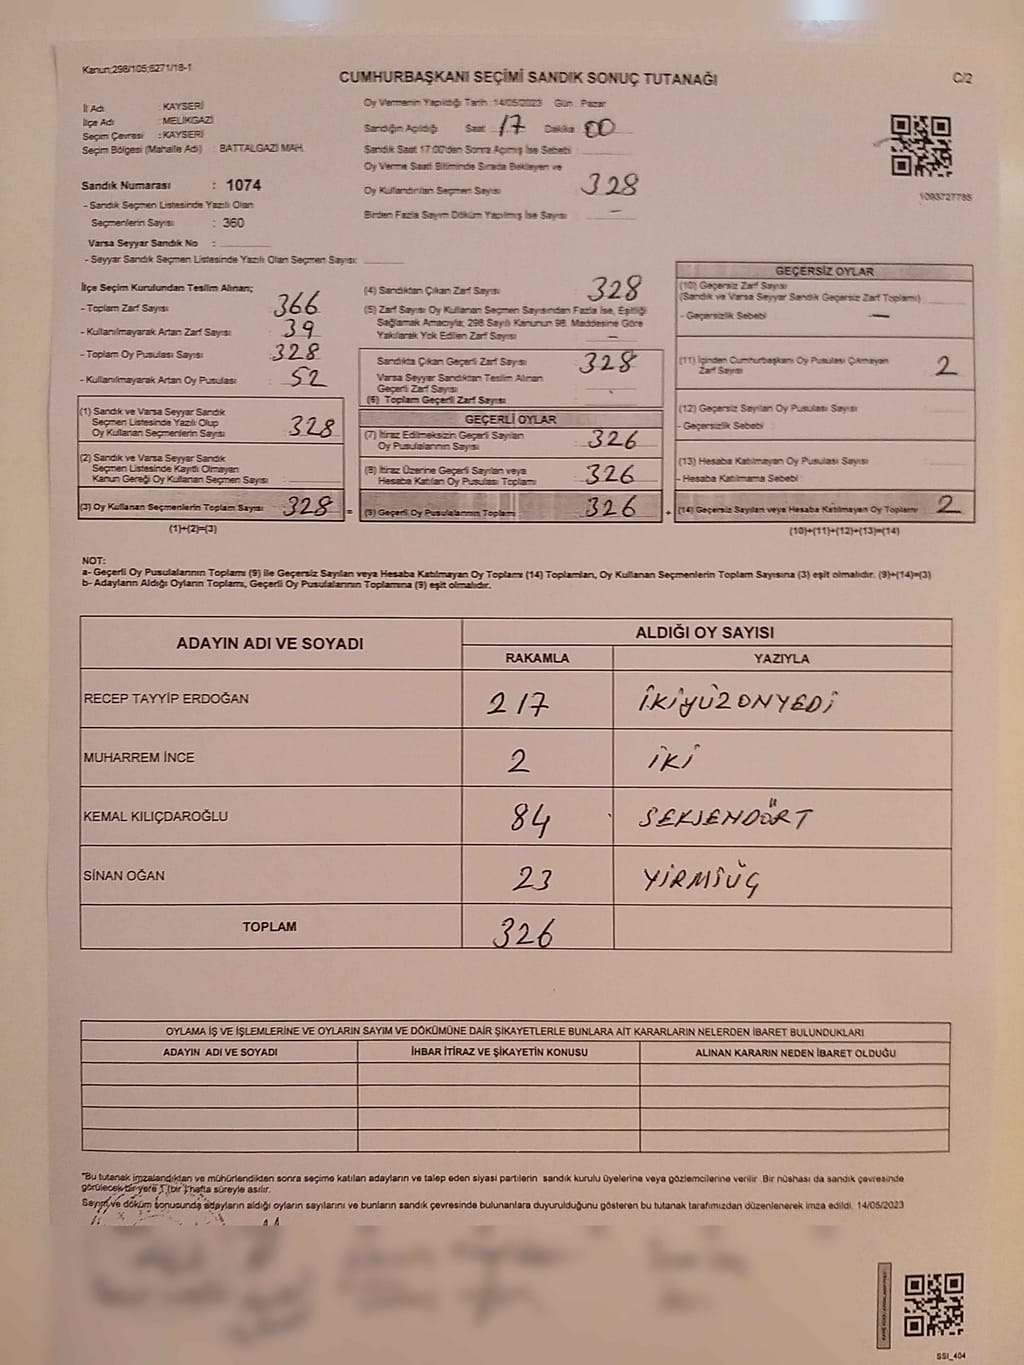 Kanun;298/105;6271/18-1
CUMHURBAŞKANI SEÇİMİ SANDIK SONUÇ TUTANAĞI
C/2
İl Adı : KAYSERİ
İlçe Adı : MELİKGAZİ
Seçim Çevresi : KAYSERİ
Seçim Bölgesi (Mahalle Adı) : BATTALGAZİ MAH.
Oy Vermenin Yapıldığı Tarih : 14/05/2023 Gün : Pazar
Sandığın Açıldığı Saat : 17 Dakika : 00
Sandık Saat 17:00'den Sonra Açımış İse Sebebi :
Oy Verme Saati Bitiminde Sırada Bekleyen ve
Oy Kullandırılan Seçmen Sayısı 328
Birden Fazla Sayım Döküm Yapılmış İse Sayısı : -
1093727785
Sandık Numarası : 1074
- Sandık Seçmen Listesinde Yazılı Olan
Seçmenlerin Sayısı : 360
Varsa Seyyar Sandık No :
- Seyyar Sandık Seçmen Listesinde Yazılı Olan Seçmen Sayısı:
İlçe Seçim Kurulundan Teslim Alınan;
- Toplam Zarf Sayısı : 366
- Kullanılmayarak Artan Zarf Sayısı : 39
- Toplam Oy Pusulası Sayısı : 328
- Kullanılmayarak Artan Oy Pusulası : 52
(1) Sandık ve Varsa Seyyar Sandık
Seçmen Listesinde Yazılı Olup
Oy Kullanan Seçmenlerin Sayısı : 328
(2) Sandık ve Varsa Seyyar Sandık
Seçmen Listesinde Kayıtlı Olmayan
Kanun Gereği Oy Kullanan Seçmen Sayısı :
(3) Oy Kullanan Seçmenlerin Toplam Sayısı : 328 =
(1)+(2)=(3)
(4) Sandıktan Çıkan Zarf Sayısı : 328
(5) Zarf Sayısı Oy Kullanan Seçmen Sayısından Fazla İse, Eşitliği
Sağlamak Amacıyla; 298 Sayılı Kanunun 98. Maddesine Göre
Yakılarak Yok Edilen Zarf Sayısı : -
Sandıkta Çıkan Geçerli Zarf Sayısı : 328
Varsa Seyyar Sandıktan Teslim Alınan
Geçerli Zarf Sayısı :
(6) Toplam Geçerli Zarf Sayısı :
GEÇERLİ OYLAR
(7) İtiraz Edilmeksizin Geçerli Sayılan
Oy Pusulalarının Sayısı : 326
(8) İtiraz Üzerine Geçerli Sayılan veya
Hesaba Katılan Oy Pusulası Toplamı : 326
(9) Geçerli Oy Pusulalarının Toplamı : 326 +
GEÇERSİZ OYLAR
(10) Geçersiz Zarf Sayısı
(Sandık ve Varsa Seyyar Sandık Geçersiz Zarf Toplamı) :
- Geçersizlik Sebebi : -
(11) İçinden Cumhurbaşkanı Oy Pusulası Çıkmayan
Zarf Sayısı 2
(12) Geçersiz Sayılan Oy Pusulası Sayısı :
- Geçersizlik Sebebi :
(13) Hesaba Katılmayan Oy Pusulası Sayısı :
- Hesaba Katılmama Sebebi :
(14) Geçersiz Sayılan veya Hesaba Katılmayan Oy Toplamı : 2
(10)+(11)+(12)+(13)=(14)
NOT:
a- Geçerli Oy Pusulalarının Toplamı (9) ile Geçersiz Sayılan veya Hesaba Katılmayan Oy Toplamı (14) Toplamları, Oy Kullanan Seçmenlerin Toplam Sayısına (3) eşit olmalıdır. (9)+(14)=(3)
b- Adayların Aldığı Oyların Toplamı, Geçerli Oy Pusulalarının Toplamına (9) eşit olmalıdır.
ADAYIN ADI VE SOYADI
ALDIĞI OY SAYISI
RAKAMLA YAZIYLA
RECEP TAYYİP ERDOĞAN 217 İKİYÜZONYEDİ
MUHARREM İNCE 2 İKİ
KEMAL KILIÇDAROĞLU 84 SEKSENDÖRT
SİNAN OĞAN 23 YİRMİÜÇ
TOPLAM 326
OYLAMA İŞ VE İŞLEMLERİNE VE OYLARIN SAYIM VE DÖKÜMÜNE DAİR ŞİKAYETLERLE BUNLARA AİT KARARLARIN NELERDEN İBARET BULUNDUKLARI
ADAYIN ADI VE SOYADI İHBAR İTİRAZ VE ŞİKAYETİN KONUSU ALINAN KARARIN NEDEN İBARET OLDUĞU
"Bu tutanak imzalandıktan ve mühürlendikten sonra seçime katılan adayların ve talep eden siyasi partilerin sandık kurulu üyelerine veya gözlemcilerine verilir. Bir nüshası da sandık çevresinde
görülecek bir yere 1 (bir) hafta süreyle asılır.
Sayım ve döküm sonusunda adayların aldığı oyların sayılarını ve bunların sandık çevresinde bulunanlara duyurulduğunu gösteren bu tutanak tarafımızdan düzenlenerek imza edildi. 14/05/2023
SSI_404